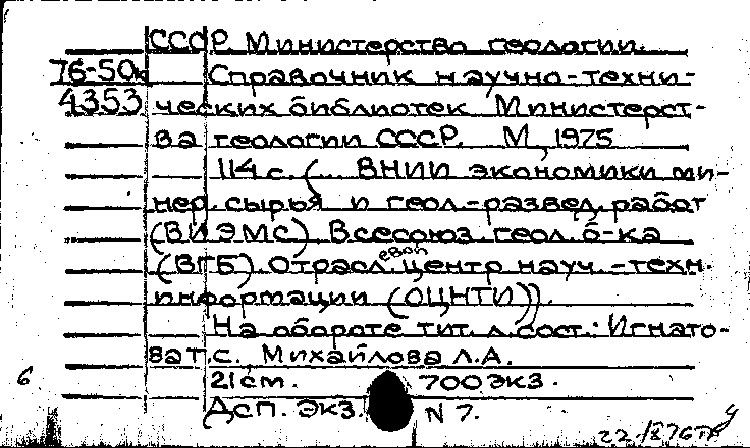 СССР. Министерство геологии.
76-50к Справочник научно-техни-
4353 ческих библиотек Министерст-
ва геологии СССР. М, 1975
114 с. (... ВНИИ экономики ми-
нер. сырья и геол.-развед. работ
(ВИЭМС). Всесоюз. геол. б-ка
(ВГБ). Отрасл.евой центр науч.-техн.
информации (ОЦНТИ)).
На обороте тит. л. сост.: Игнато-
ва Т.С., Михайлова Л.А.
6 21 см. 700 экз.
Дсп. Экз. N 7.